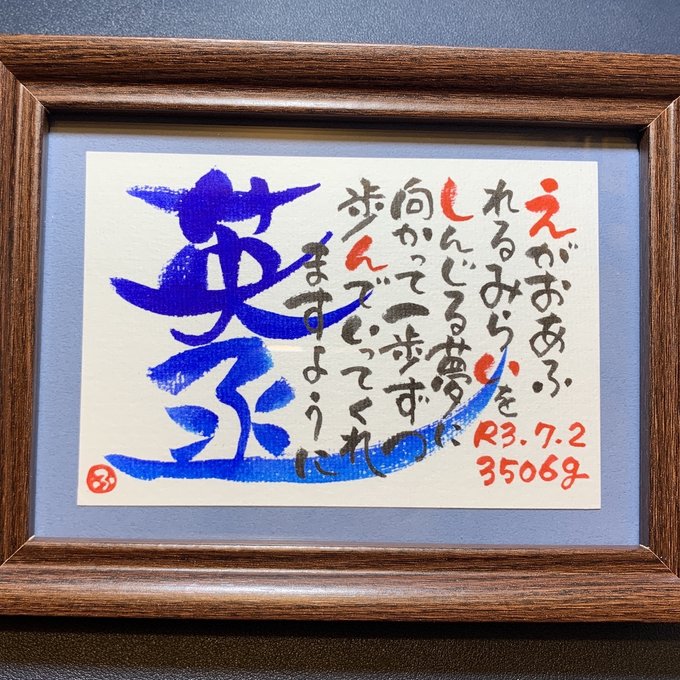 えがおあふ
れるみらいを
しんじる夢に
向かって一歩ずつ
歩んでいってくれ
ますように
R3.7.2
3506g
英丞
ふ